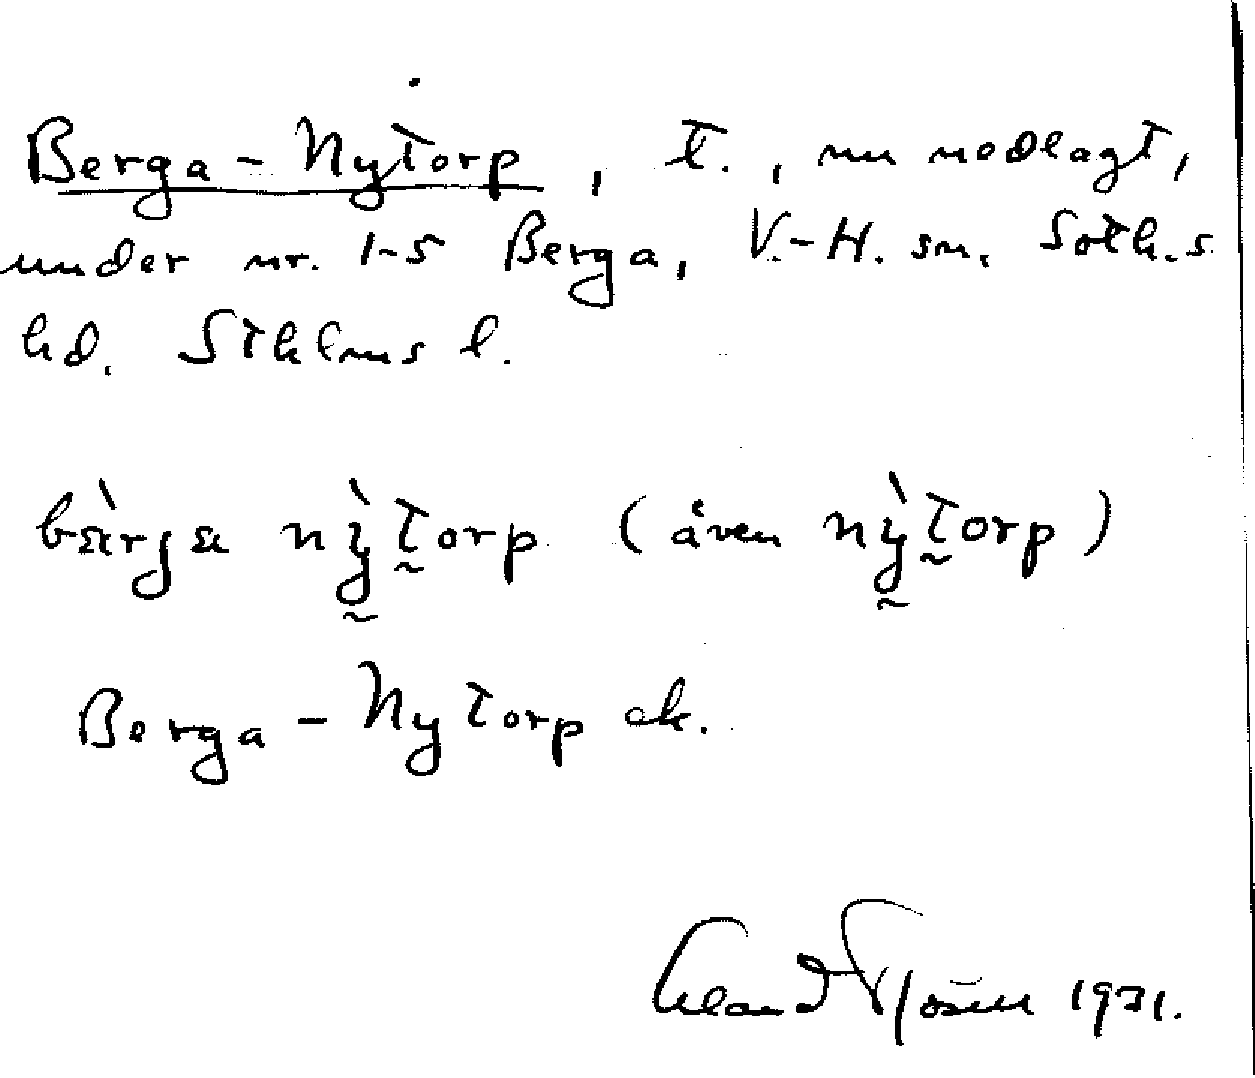 Berga-Nytorp, t., nu nedlagt,
under nr. 1-5 Berga, V.-H. sn, Soth.s
hd. Sthlms l.
bärga nỳtorp (även nỳtorp)
Berga-Nytorp ek.
1931.